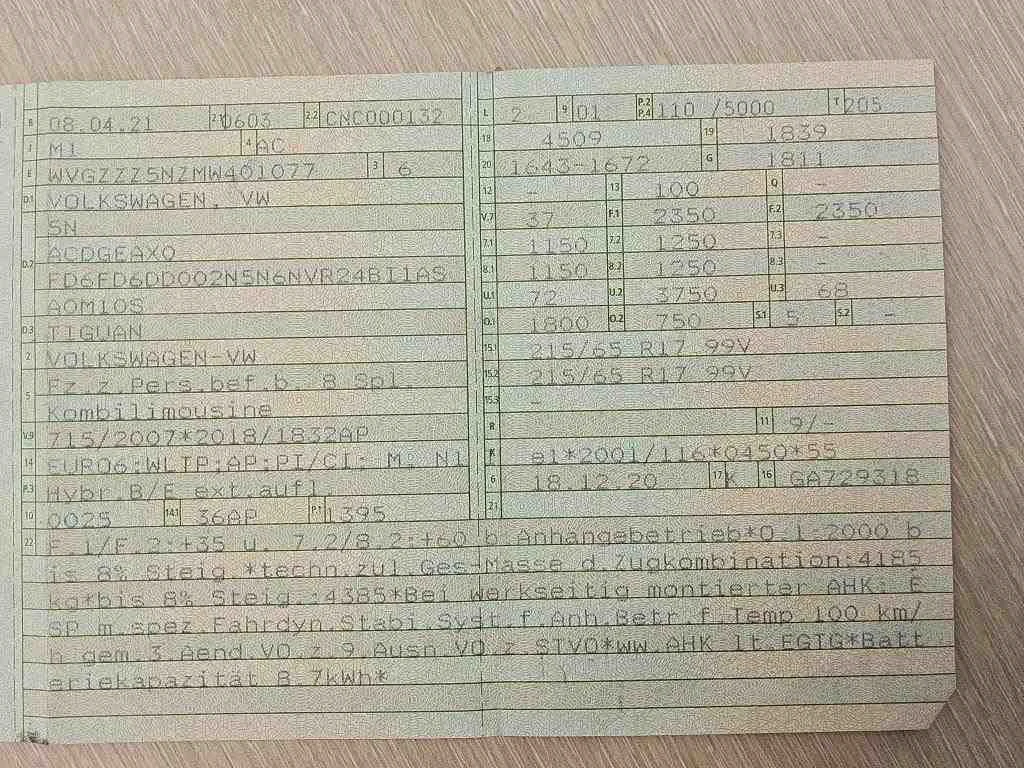 B 08.04.21 2.1 0603 2.2 CNC000132
J M1 4 AC
E WVGZZZ5NZMW401077 3 6
D.1 VOLKSWAGEN, VW
5N
D.2 ACDGEAX0
FD6FD6DD002N5N6NVR24BI1AS
A0M10S
D.3 TIGUAN
2 VOLKSWAGEN-VW
5 Fz.z.Pers.bef.b. 8 Spl.
Kombilimousine
V.9 715/2007*2018/1832AP
14 EURO6;WLTP;AP;PI/CI; M, N1
P.3 Hybr.B/E ext.aufl.
10 0025 14.1 36AP P.1 1395
L 2 9 01 P.2 P.4 110 /5000 T 205
18 4509 19 1839
20 1643-1672 G 1811
12 - 13 100 Q -
V.7 37 F.1 2350 F.2 2350
7.1 1150 7.2 1250 7.3 -
8.1 1150 8.2 1250 8.3 -
U.1 72 U.2 3750 U.3 68
O.1 1800 O.2 750 S.1 5 S.2 -
15.1 215/65 R17 99V
15.2 215/65 R17 99V
15.3 -
R 11 9/-
K e1*2001/116*0450*55
6 18.12.20 17 K 16 GA729318
21
22 F.1/F.2:+35 u. 7.2/8.2:+60 b.Anhängebetrieb*O.1:2000 b
is 8% Steig.*techn.zul.Ges-Masse d.Zugkombination:4185
kg*bis 8% Steig.:4385*Bei werkseitig montierter AHK: E
SP m.spez.Fahrdyn.Stabi.Syst.f.Anh.Betr.f.Temp.100 km/
h gem.3.Aend.VO.z.9.Ausn.VO.z.STVO*ww.AHK lt.EGTG*Batt
eriekapazität 8.7kWh*